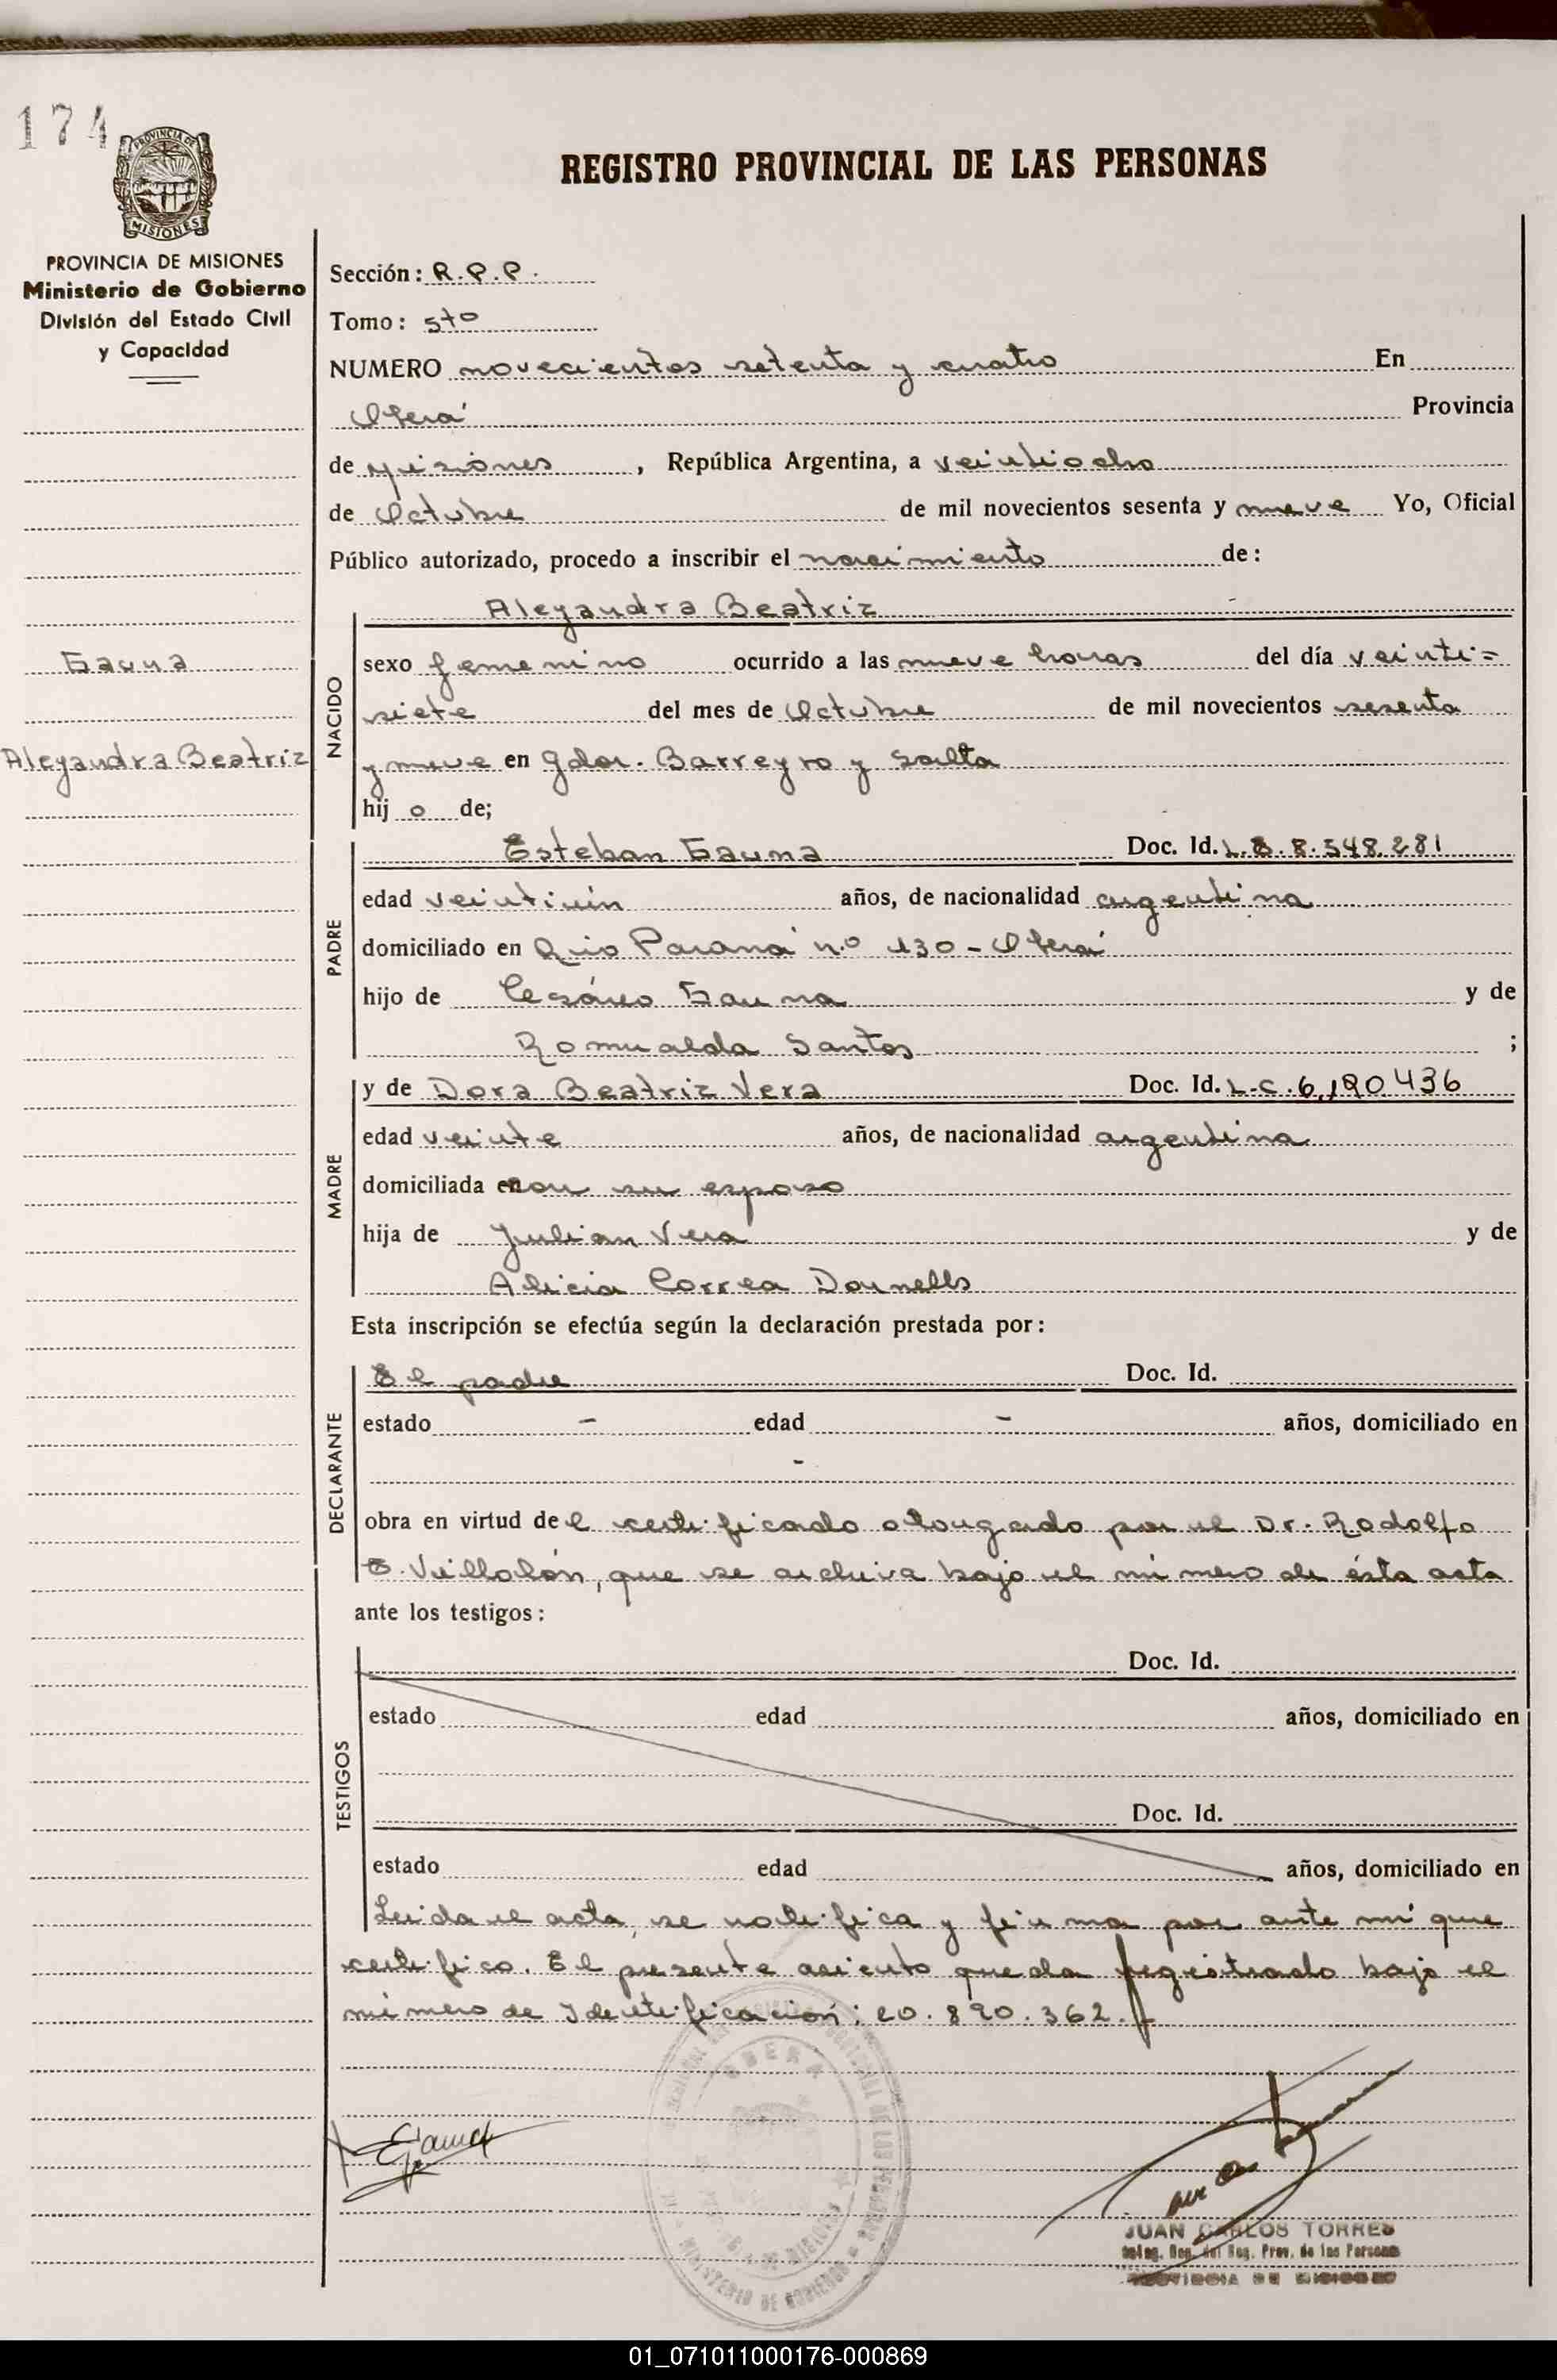 174
PROVINCIA DE
MISIONES
REGISTRO PROVINCIAL DE LAS PERSONAS
PROVINCIA DE MISIONES
Ministerio de Gobierno
División del Estado Civil
y Capacidad
Sección: R.P.P.
Tomo: 5to
NUMERO novecientos setenta y cuatro En
Oberá Provincia
de Misiones, República Argentina, a veintiocho
de Octubre de mil novecientos sesenta y nueve Yo, Oficial
Público autorizado, procedo a inscribir el nacimiento de:
Gauna
Alejandra Beatriz
NACIDO
Alejandra Beatriz
sexo femenino ocurrido a las nueve horas del día veinti=
siete del mes de Octubre de mil novecientos sesenta
y nueve en Gdor. Barreyro y Salta
hij o de;
PADRE
Esteban Gauna Doc. Id. L.E. 8.548.281
edad veintiún años, de nacionalidad argentina
domiciliado en Río Paraná nº 130 - Oberá
hijo de Cesáreo Gauna y de
Romualda Santos ;
MADRE
y de Dora Beatriz Vera Doc. Id. L.C. 6.190436
edad veinte años, de nacionalidad argentina
domiciliada con su esposo
hija de Julian Vera y de
Alicia Correa Dornells
Esta inscripción se efectúa según la declaración prestada por:
DECLARANTE
El padre Doc. Id.
estado - edad - años, domiciliado en
-
obra en virtud de l certificado otorgado por el Dr. Rodolfo
E. Villalón, que se archiva bajo el número de ésta acta
ante los testigos:
TESTIGOS
Doc. Id.
estado edad años, domiciliado en
Doc. Id.
estado edad años, domiciliado en
Leida el acta, se notifica y firma por ante mí que
certifico. El presente asiento queda registrado bajo el
número de Identificación: 20.890.362.-
OBERA
MINISTERIO DE GOBIERNO
EGauna
JUAN CARLOS TORRES
Reg. Prov. de las Personas
PROVINCIA DE MISIONES
01_071011000176-000869